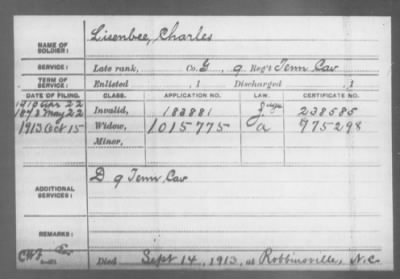 NAME OF SOLDIER: Lisenbee, Charles
SERVICE: Late rank, Co. G, 9 Reg't Tenn Cav
TERM OF SERVICE: Enlisted , 1 Discharged , 1
DATE OF FILING. CLASS. APPLICATION NO. LAW. CERTIFICATE NO.
1910 Apr 22
1873 May 22 Invalid, 183881 238585
1913 Oct 15 Widow, 1015775 a 775298
Minor,
ADDITIONAL SERVICES: D 9 Tenn Cav
REMARKS:
Died Sept 14, 1913, at Robbinsville, N.C.